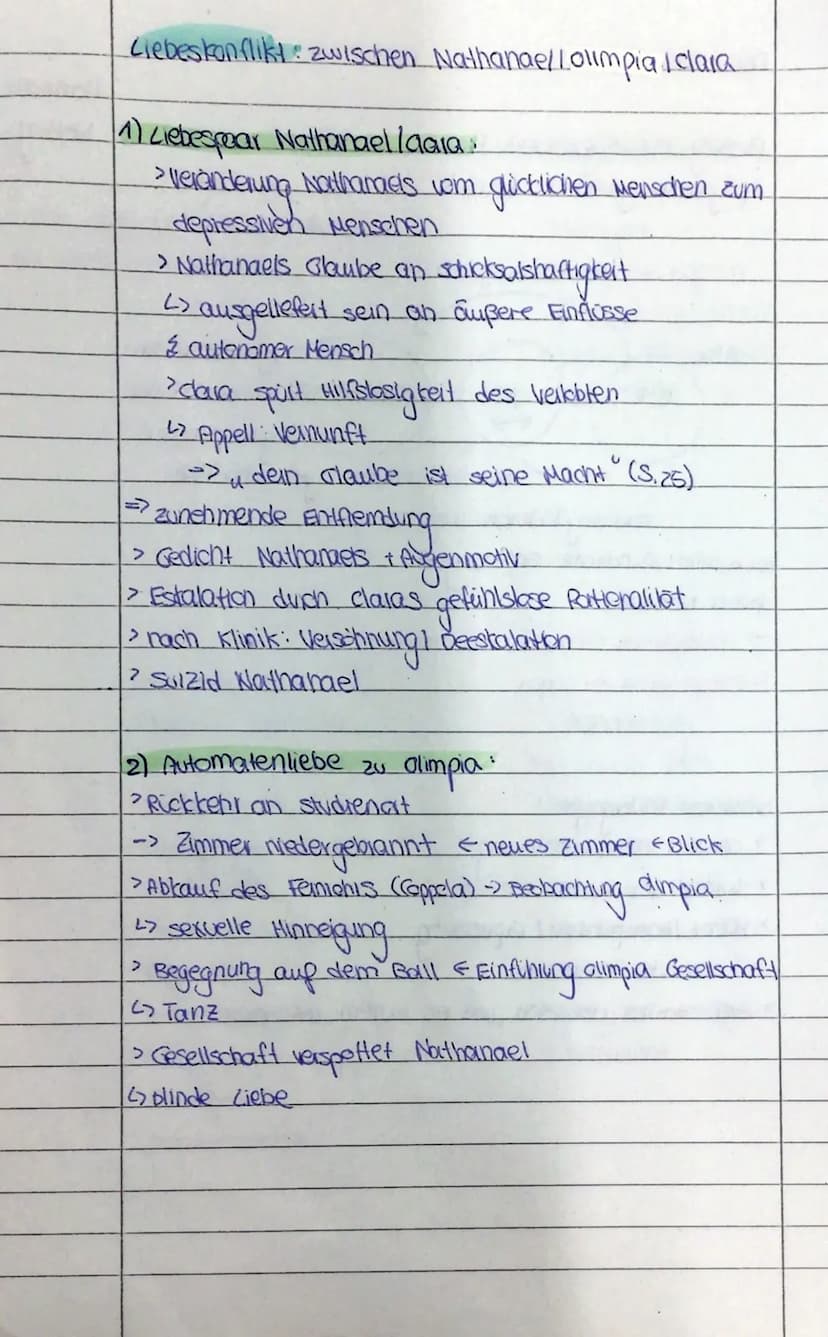 Liebeskonflikt: zwischen Nathanael/Olimpia/Clara
1) Liebespaar Nathanael/Clara:
> Veränderung Nathanaels vom glücklichen Menschen zum
depressiven Menschen
> Nathanaels Glaube an Schicksalshaftigkeit
↳ ausgeliefert sein an äußere Einflüsse
↯ autonomer Mensch
> Clara spürt Hilfslosigkeit des Verlobten
↳ Appell: Vernunft
=> „dein Glaube ist seine Macht“ (S.25)
=> zunehmende Entfremdung
> Gedicht Nathanaels + Augenmotiv
> Eskalation durch Claras gefühlslose Rationalität
> nach Klinik: Versöhnung/Deeskalation
> Suizid Nathanael
2) Automatenliebe zu Olimpia:
> Rückkehr an Studienort
-> Zimmer niedergebrannt ← neues Zimmer ← Blick
> Abkauf des Fernrohrs (Coppola) -> Beobachtung Olimpia
↳ sexuelle Hinneigung
> Begegnung auf dem Ball ← Einführung Olimpia Gesellschaft
↳ Tanz
> Gesellschaft verspottet Nathanael
↳ blinde Liebe